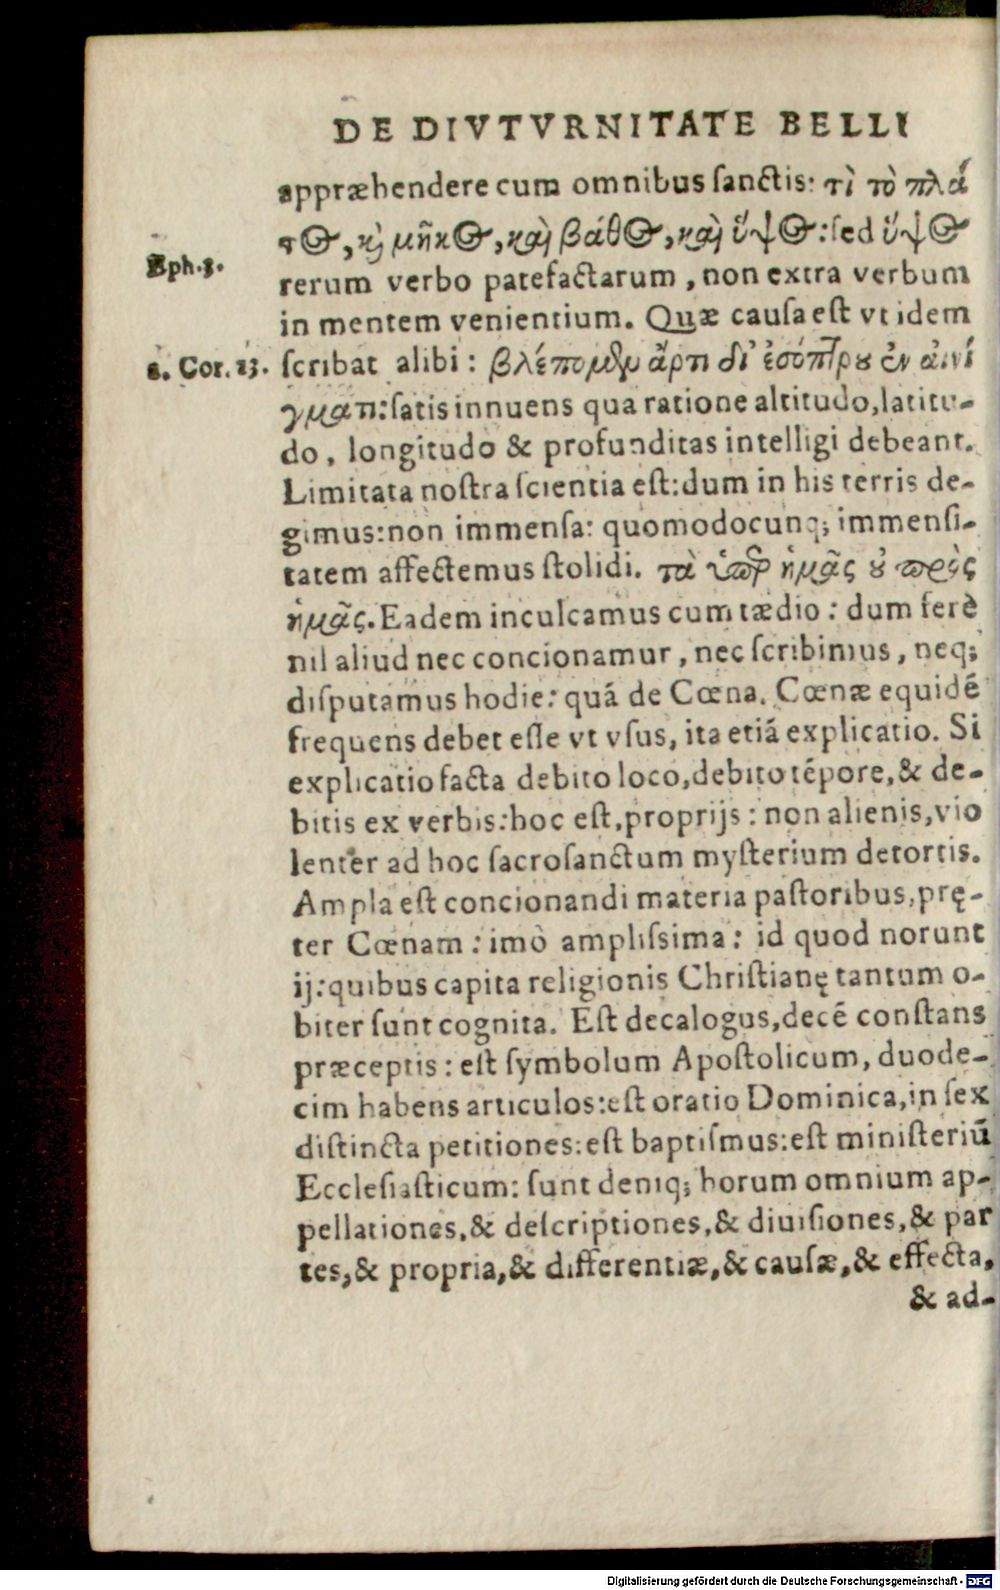 DE DIVTVRNITATE BELLI
appræhendere cum omnibus ſanctis: τὶ τὸ πλά
τος, καὶ μῆκος, καὶ βάθος, καὶ ὕψος: ſed ὕψος
Eph. 3.
rerum verbo patefactarum, non extra verbum
in mentem venientium. Quæ cauſa eſt vt idem
1. Cor. 13.
ſcribat alibi: βλέπομεν ἄρτι δι' ἐσόπτρου ἐν αἰνί
γματι: ſatis innuens qua ratione altitudo, latitu-
do, longitudo & profunditas intelligi debeant.
Limitata noſtra ſcientia eſt: dum in his terris de-
gimus: non immenſa: quomodocunq; immenſi-
tatem affectemus ſtolidi. τὰ ὑπὲρ ἡμᾶς οὐ πρὸς
ἡμᾶς. Eadem inculcamus cum tædio: dum ferè
nil aliud nec concionamur, nec ſcribimus, neq;
diſputamus hodie: quá de Cœna. Cœnæ equidē
frequens debet eſſe vt vſus, ita etiá explicatio. Si
explicatio facta debito loco, debito tēpore, & de-
bitis ex verbis: hoc eſt, proprijs: non alienis, vio
lenter ad hoc ſacroſanctum myſterium detortis.
Ampla eſt concionandi materia paſtoribus, prę-
ter Cœnam: imò ampliſsima: id quod norunt
ij: quibus capita religionis Chriſtianę tantum o-
biter ſunt cognita. Eſt decalogus, decē conſtans
præceptis: eſt ſymbolum Apoſtolicum, duode-
cim habens articulos: eſt oratio Dominica, in ſex
diſtincta petitiones: eſt baptiſmus: eſt miniſteriū
Eccleſiaſticum: ſunt deniq; horum omnium ap-
pellationes, & deſcriptiones, & diuiſiones, & par
tes, & propria, & differentiæ, & cauſæ, & effecta,
& ad-
Digitalisierung gefördert durch die Deutsche Forschungsgemeinschaft - DFG